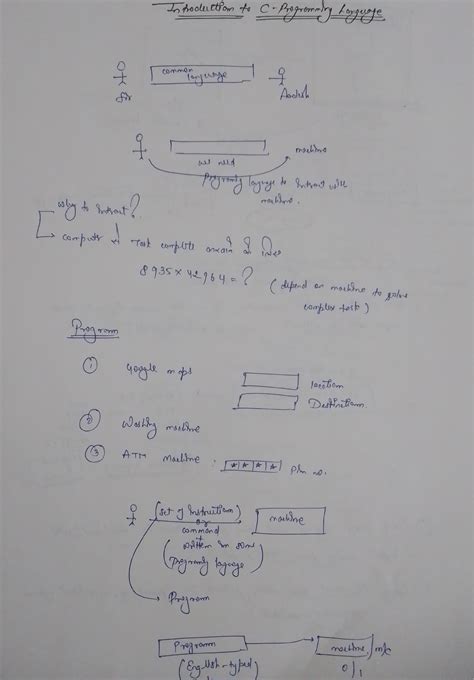 Introduction to C-Programming Language
common
language
Sir
Aadesh
machine
we need
Programing language to Intract with
machine.
Why to Intract?
computer से Task complete करवाने के लिए
8935 x 42964 = ?
(depend on machine to solve
complex task)
Program
① Google maps
location
Destination
② Washing machine
③ ATM machine : * * * * pin no.
(set of Instruction)
or
command
machine
written in some
Programing laguage)
Program
Program
machine / m/c
(English-typed)
0/1